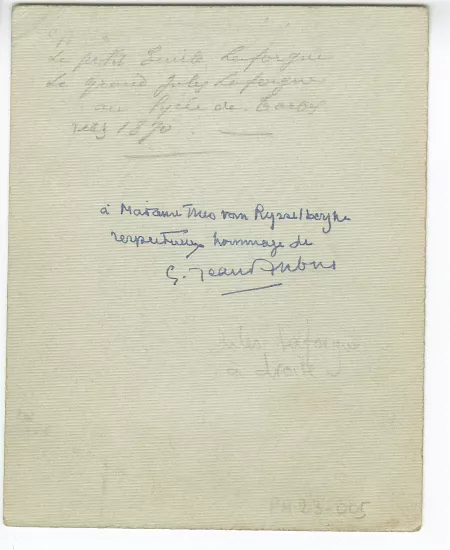 Le petit Emile Laforgue
Le grand Jules Laforgue
au lycée de Tarbes
vers 1870.
à Madame Theo van Rysselberghe
respectueux hommage de
G. Jean-Aubry
Jules Laforgue
à droite
PH 23-005